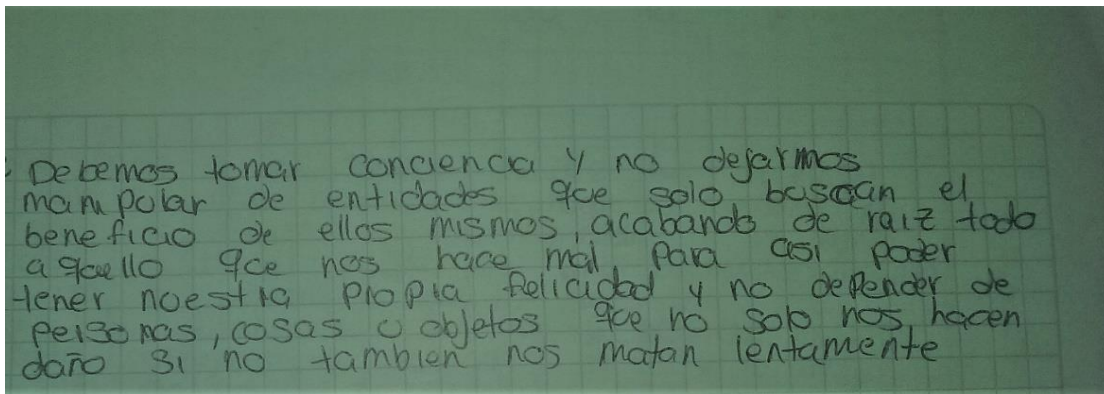 Debemos tomar conciencia y no dejarmos
manipolar de entidades que solo buscan el
beneficio de ellos mismos, acabando de raiz todo
aquello que nos hace mal para asi poder
tener nuestra propia felicidad y no depender de
personas, cosas u objetos que no solo nos hacen
daño si no tambien nos matan lentamente